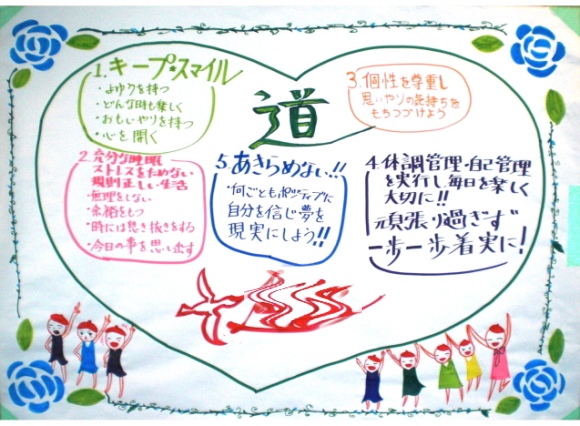 道
1.キープ・スマイル
・よゆうを持つ
・どんな時も楽しく
・おもいやりを持つ
・心を開く
2.充分な睡眠
ストレスをためない
規則正しい生活
・無理をしない
・余裕をもつ
・時には息き抜きをする
・今日の事を思い出す
3.個性を尊重し
思いやりの気持ちを
もちつづけよう
4.体調管理・自己管理
を実行し毎日を楽しく
大切に!!
頑張り過ぎず
一歩一歩着実に!
5.あきらめない!!
・何ごともポジティブに
自分を信じ夢を
現実にしよう!!